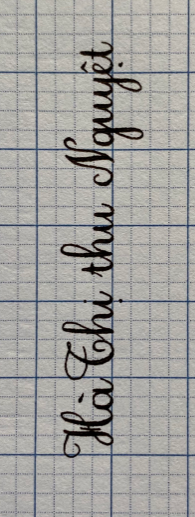 Hà Thị thu Nguyệt